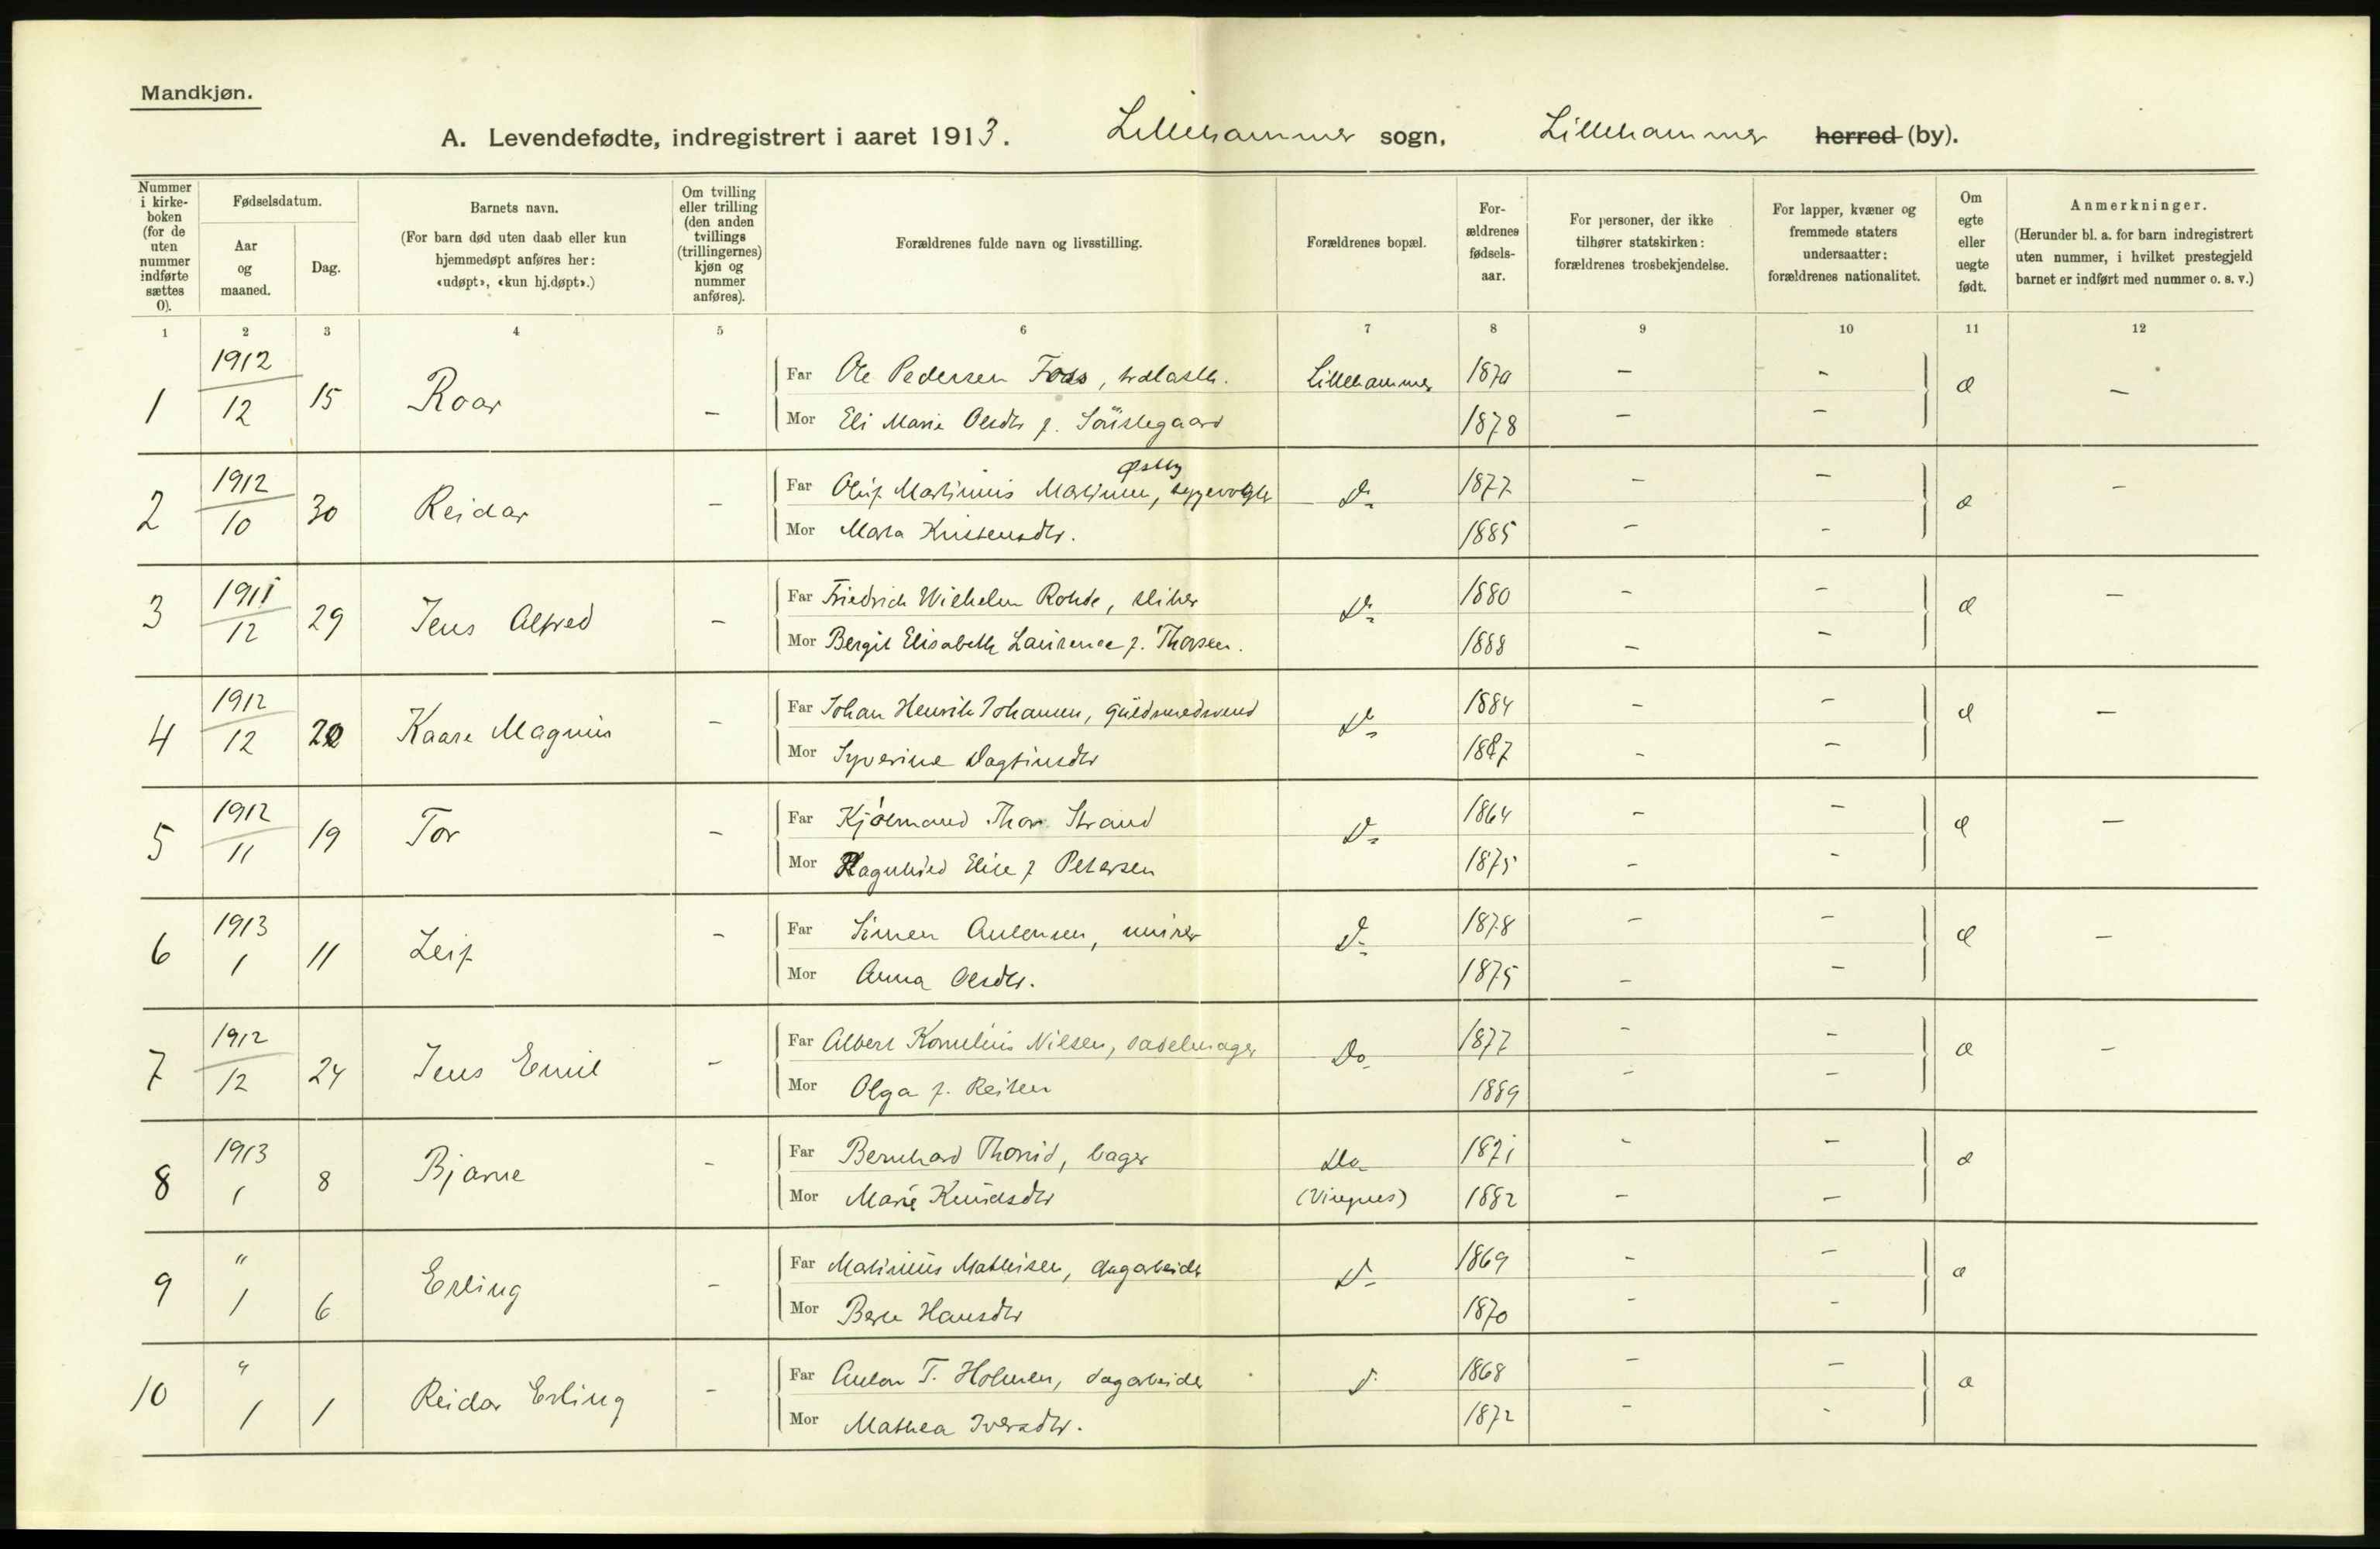 Mandkjøn.
A. Levendefødte, indregistrert i aaret 1913. Lillehammer sogn, Lillehammer herred (by).
Nummer i kirkeboken (for de uten nummer indførte sættes 0).
Fødselsdatum.
Aar og maaned.
Dag.
Barnets navn.
(For barn død uten daab eller kun hjemmedøpt anføres her: «udøpt», «kun hj.døpt».)
Om tvilling eller trilling (den anden tvillings (trillingernes) kjøn og nummer anføres).
Forældrenes fulde navn og livsstilling.
Forældrenes bopæl.
Forældrenes fødselsaar.
For personer, der ikke tilhører statskirken: forældrenes trosbekjendelse.
For lapper, kvæner og fremmede staters undersaatter: forældrenes nationalitet.
Om egte eller uegte født.
Anmerkninger.
(Herunder bl. a. for barn indregistrert uten nummer, i hvilket prestegjeld barnet er indført med nummer o. s. v.)
1 2 3 4 5 6 7 8 9 10 11 12
1 1912/12 15 Roar - Far Ole Pedersen Foss, Lillehammer 1870 - - æ -
Mor Eli Marie Olsdtr f. 1878 - -
2 1912/10 30 Reidar - Far Oluf Martinius Martinsen Østby, Do 1877 - - æ -
Mor Marta Kristensdtr. 1885 - -
3 1911/12 29 Jens Alfred - Far Friedrich Wilhelm Rohde, sliber Do 1880 - - æ -
Mor Bergit Elisabeth Laurense f. Thorsen. 1888 - -
4 1912/12 Kaare Magnus - Far Johan Henrik Johansen, guldsmedsvend Do 1884 - - æ -
Mor Syverine Dagfinsdtr 1887 - -
5 1912/11 19 Tor - Far Kjøbmand Thor Strand Do 1864 - - æ -
Mor Ragnhild Elise f Petersen 1875 - -
6 1913 1 11 Leif - Far Simen Antonsen, murer Do 1878 - - æ -
Mor Anna Olsdtr. 1875 - -
7 1912/12 24 Jens Emil - Far Albert Kornelius Nilsen, sadelmager Do 1877 - - æ -
Mor Olga f. Reiten 1889 - -
8 1913 1 8 Bjarne - Far Bernhard Thorud, bager Do 1871 - - æ
Mor Marie Knudsdtr (Vingnes) 1882 - -
9 " 1 6 Erling - Far Matinius Mathisen, dagarbeider Do 1869 - - æ
Mor Berte Hansdtr 1870 - -
10 " 1 1 Reidar Erling - Far Anton T. Holmen, dagarbeider D. 1868 - - æ
Mor Mathea Iversdtr. 1872 - -